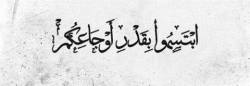 ابْتَسِمُوا بِقَدْرِ أَوْجَاعِكُمْ